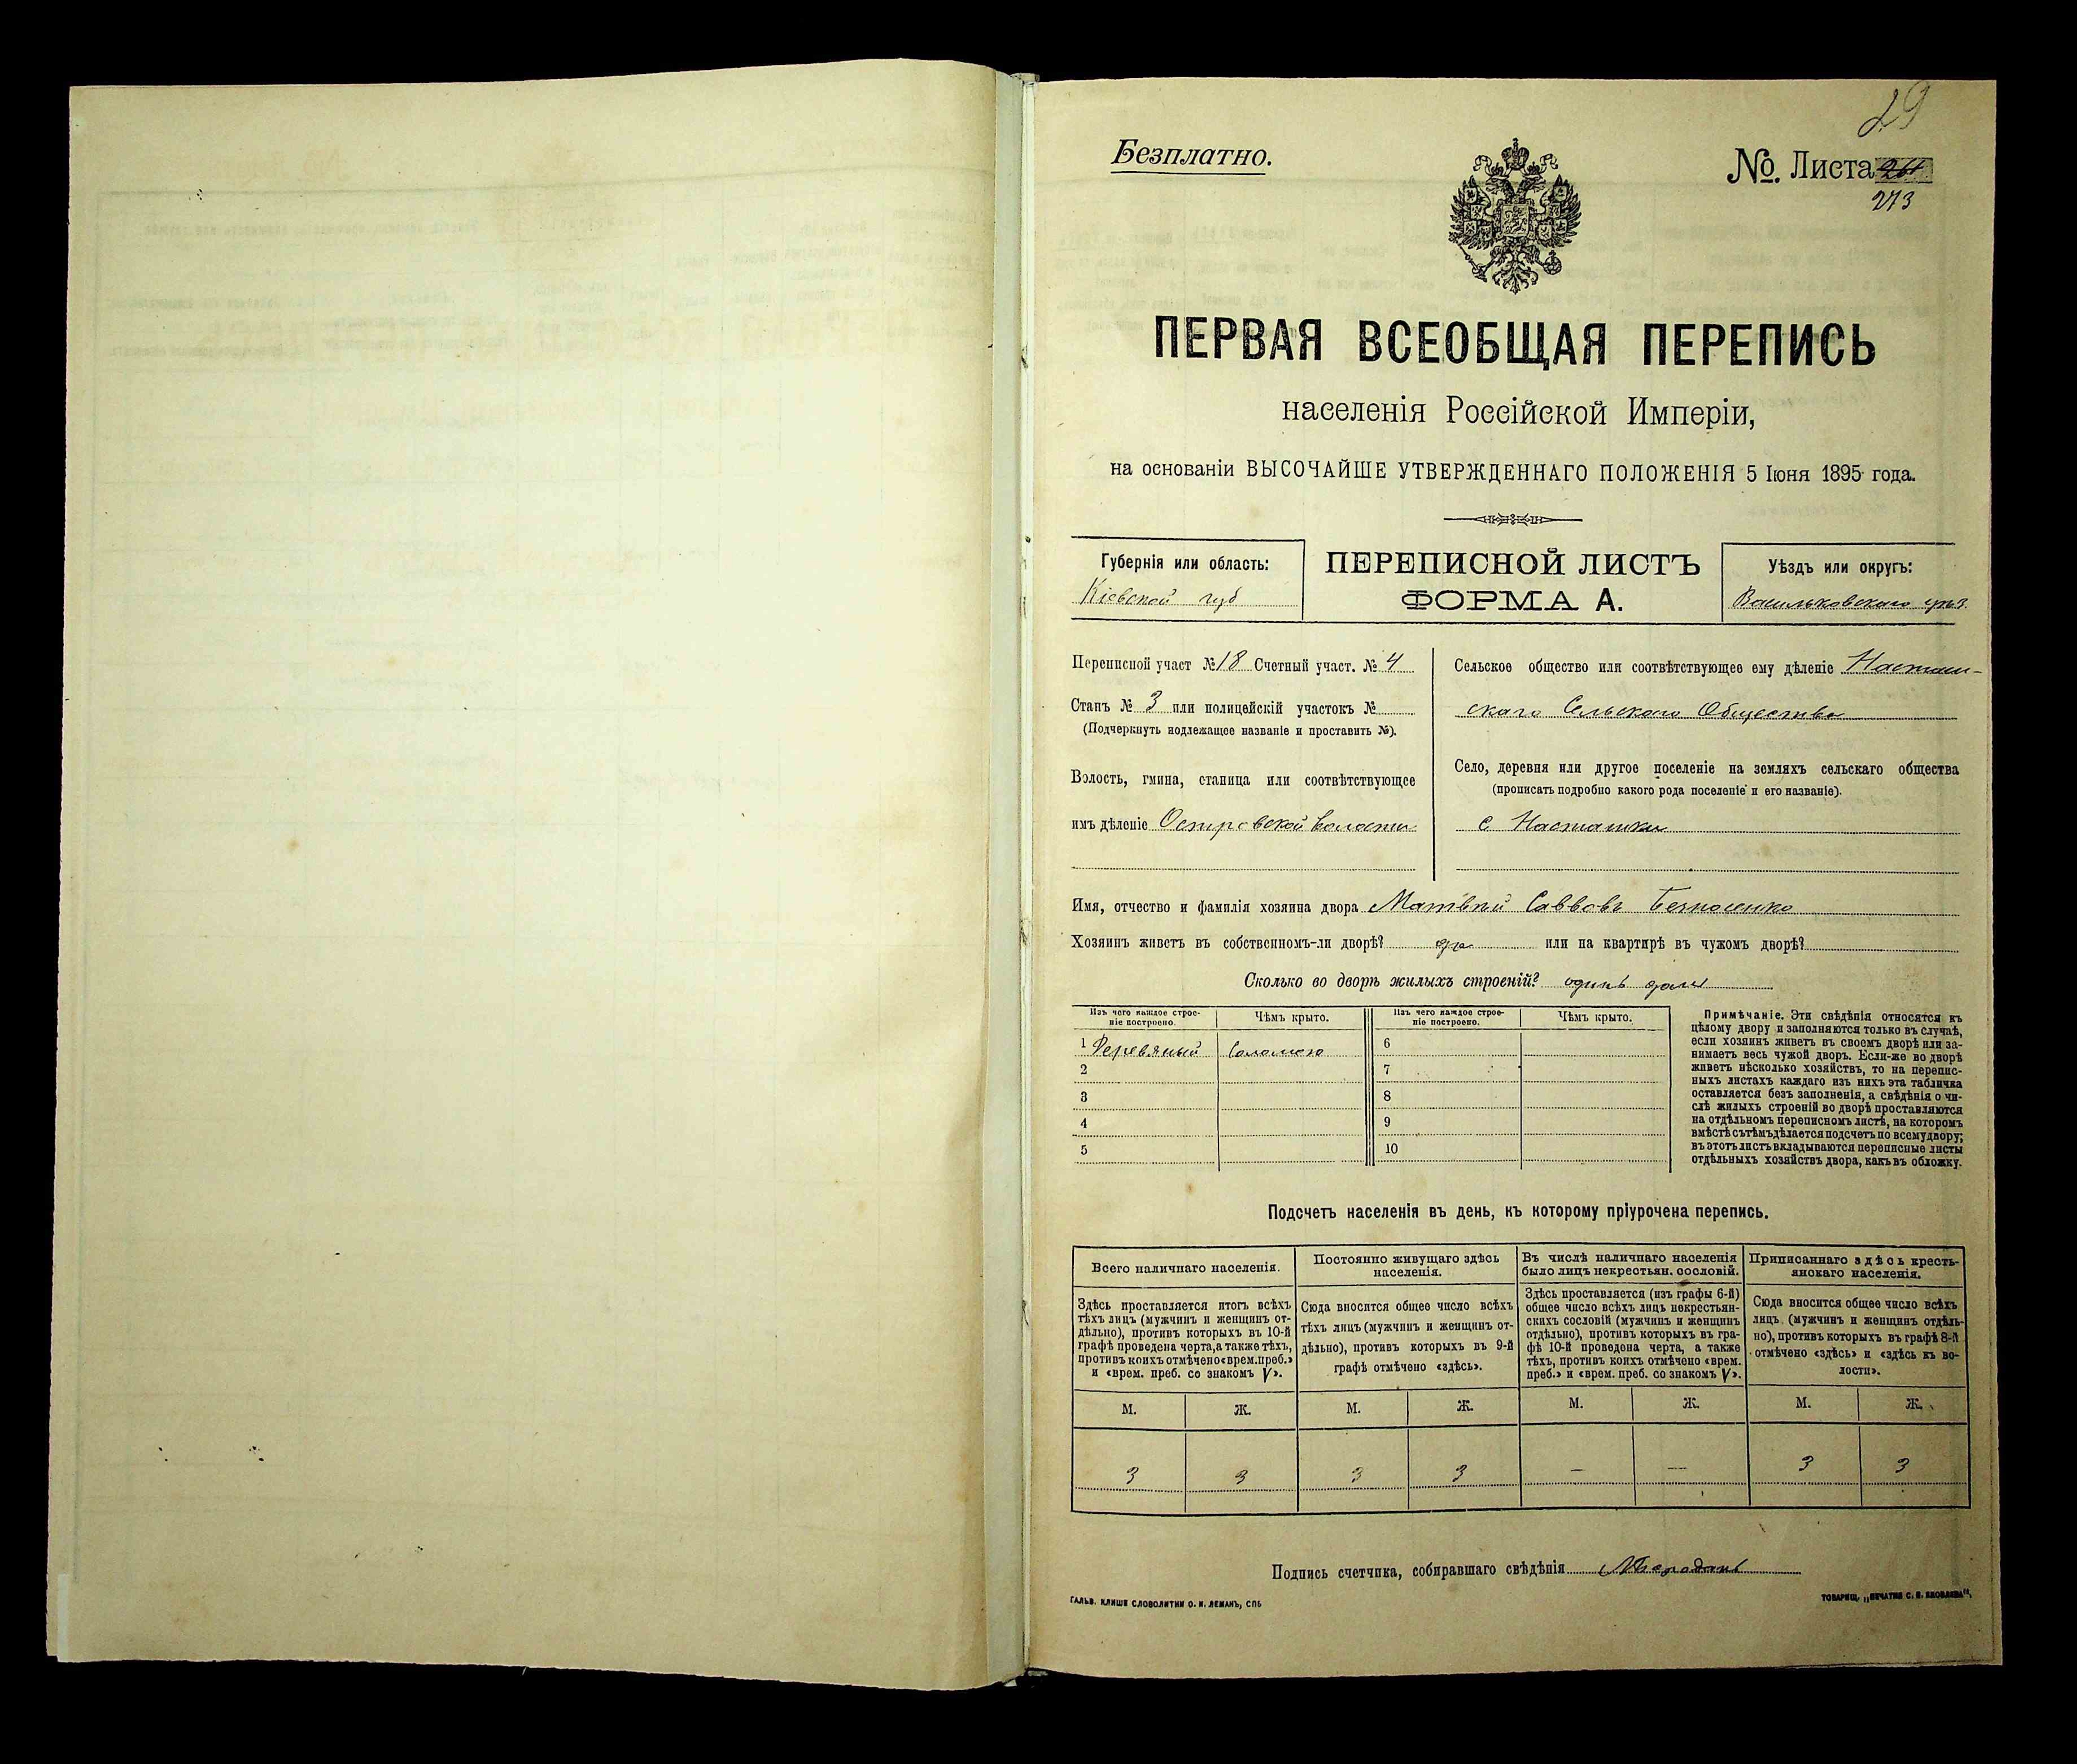 29
Безплатно.
№. Листа 264
273
ПЕРВАЯ ВСЕОБЩАЯ ПЕРЕПИСЬ
населенія Россійской Имперіи,
на основаніи ВЫСОЧАЙШЕ УТВЕРЖДЕННАГО ПОЛОЖЕНІЯ 5 Іюня 1895 года.
Губернія или область:
Кіевской губ
ПЕРЕПИСНОЙ ЛИСТЪ
ФОРМА А.
Уѣздъ или округъ:
Васильковскаго уѣз.
Переписной участ №18 Счетный участ. № 4
Станъ № 3 или полицейскій участокъ №
(Подчеркнуть подлежащее названіе и проставить №).
Волость, гмина, станица или соотвѣтствующее
имъ дѣленіе Островской волости
Сельское общество или соотвѣтствующее ему дѣленіе Насташ-
скаго Сельскаго Общества
Село, деревня или другое поселеніе на земляхъ сельскаго общества
(прописать подробно какого рода поселеніе и его названіе).
с Насташки
Имя, отчество и фамилія хозяина двора Матвѣй Саввовъ Безносенко
Хозяинъ живетъ въ собственномъ-ли дворѣ? да или на квартирѣ въ чужомъ дворѣ?
Сколько во дворѣ жилыхъ строеній? одинъ домъ
Изъ чего каждое строе-
ніе построено.
Чѣмъ крыто.
Изъ чего каждое строе-
ніе построено.
Чѣмъ крыто.
1 Деревяный Соломою 6
2 7
3 8
4 9
5 10
Примѣчаніе. Эти свѣдѣнія относятся къ
цѣлому двору и заполняются только въ случаѣ,
если хозяинъ живетъ въ своемъ дворѣ или за-
нимаетъ весь чужой дворъ. Если-же во дворѣ
живетъ нѣсколько хозяйствъ, то на перепис-
ныхъ листахъ каждаго изъ нихъ эта табличка
оставляется безъ заполненія, а свѣдѣнія о чи-
слѣ жилыхъ строеній во дворѣ проставляются
на отдѣльномъ переписномъ листѣ, на которомъ
вмѣстѣ съ тѣмъ дѣлается подсчетъ по всему двору;
въ этотъ листъ вкладываются переписные листы
отдѣльныхъ хозяйствъ двора, какъ въ обложку.
Подсчетъ населенія въ день, къ которому пріурочена перепись.
Всего наличнаго населенія.
Постоянно живущаго здѣсь
населенія.
Въ числѣ наличнаго населенія
было лицъ некрестьян. сословій.
Приписаннаго здѣсь кресть-
янскаго населенія.
Здѣсь проставляется итогъ всѣхъ
тѣхъ лицъ (мужчинъ и женщинъ от-
дѣльно), противъ которыхъ въ 10-й
графѣ проведена черта, а также тѣхъ,
противъ коихъ отмѣчено «врем. преб.»
и «врем. преб. со знакомъ V».
Сюда вносится общее число всѣхъ
тѣхъ лицъ (мужчинъ и женщинъ от-
дѣльно), противъ которыхъ въ 9-й
графѣ отмѣчено «здѣсь».
Здѣсь проставляется (изъ графы 6-й)
общее число всѣхъ лицъ некрестьян-
скихъ сословій (мужчинъ и женщинъ
отдѣльно), противъ которыхъ въ гра-
фѣ 10-й проведена черта, а также
тѣхъ, противъ коихъ отмѣчено «врем.
преб.» и «врем. преб. со знакомъ V».
Сюда вносится общее число всѣхъ
лицъ (мужчинъ и женщинъ отдѣль-
но), противъ которыхъ въ графѣ 8-й
отмѣчено «здѣсь» и «здѣсь къ во-
лости».
М. Ж. М. Ж. М. Ж. М. Ж.
3 3 3 3 — — 3 3
Подпись счетчика, собиравшаго свѣдѣнія
ГАЛЬВ. КЛИШЕ СЛОВОЛИТНИ О. И. ЛЕМАНЪ, СПБ
ТОВАРИЩ. „ПЕЧАТНЯ С. П. ЯКОВЛЕВА".